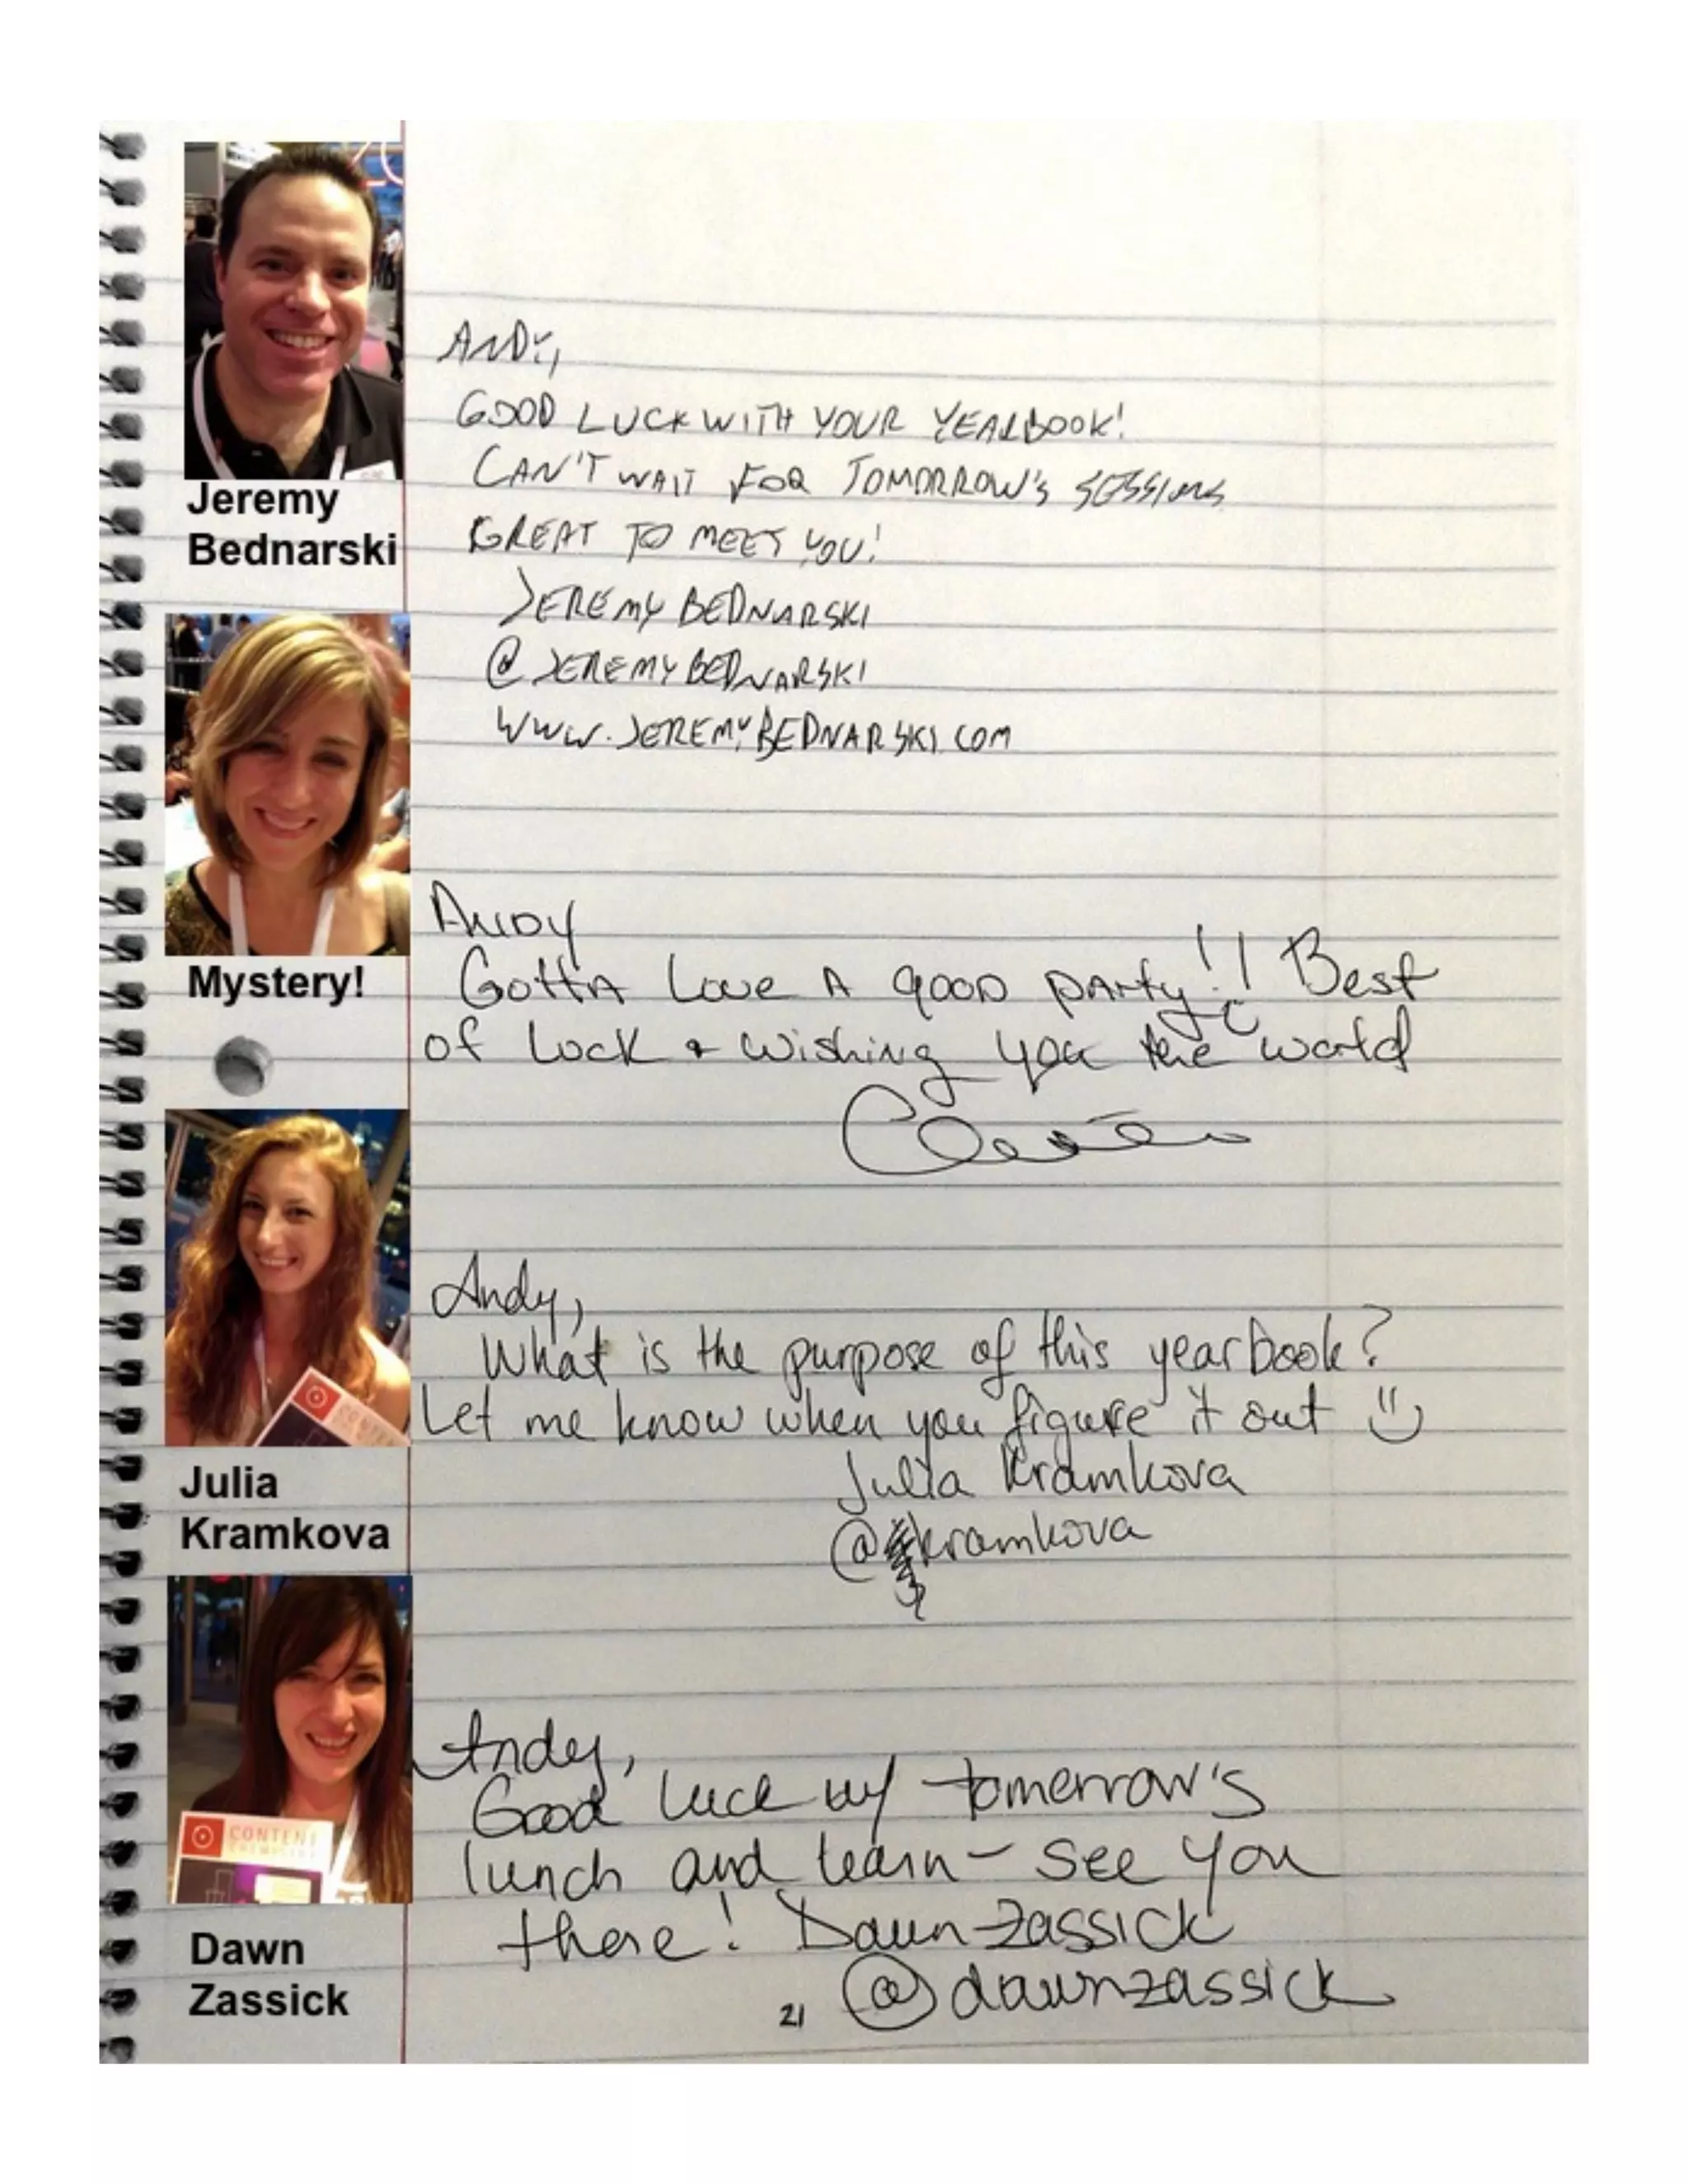 Jeremy
Bednarski
ANDY,
GOOD LUCK WITH YOUR YEARBOOK!
CAN'T WAIT FOR TOMORROW'S SESSIONS
GREAT TO MEET YOU!
JEREMY BEDNARSKI
@JEREMYBEDNARSKI
WWW.JEREMYBEDNARSKI.COM
Mystery!
ANDY
Gotta Love A good party!! Best
of Luck & Wishing you the world
Julia
Kramkova
CONTENT
Andy,
What is the purpose of this yearbook?
Let me know when you figure it out
Julia Kramkova
@kramkova
Dawn
Zassick
CONTENT
CHEMISTRY
Andy,
Good luck w/ tomorrow's
lunch and learn - see you
there! Dawn Zassick
@dawnzassick
21